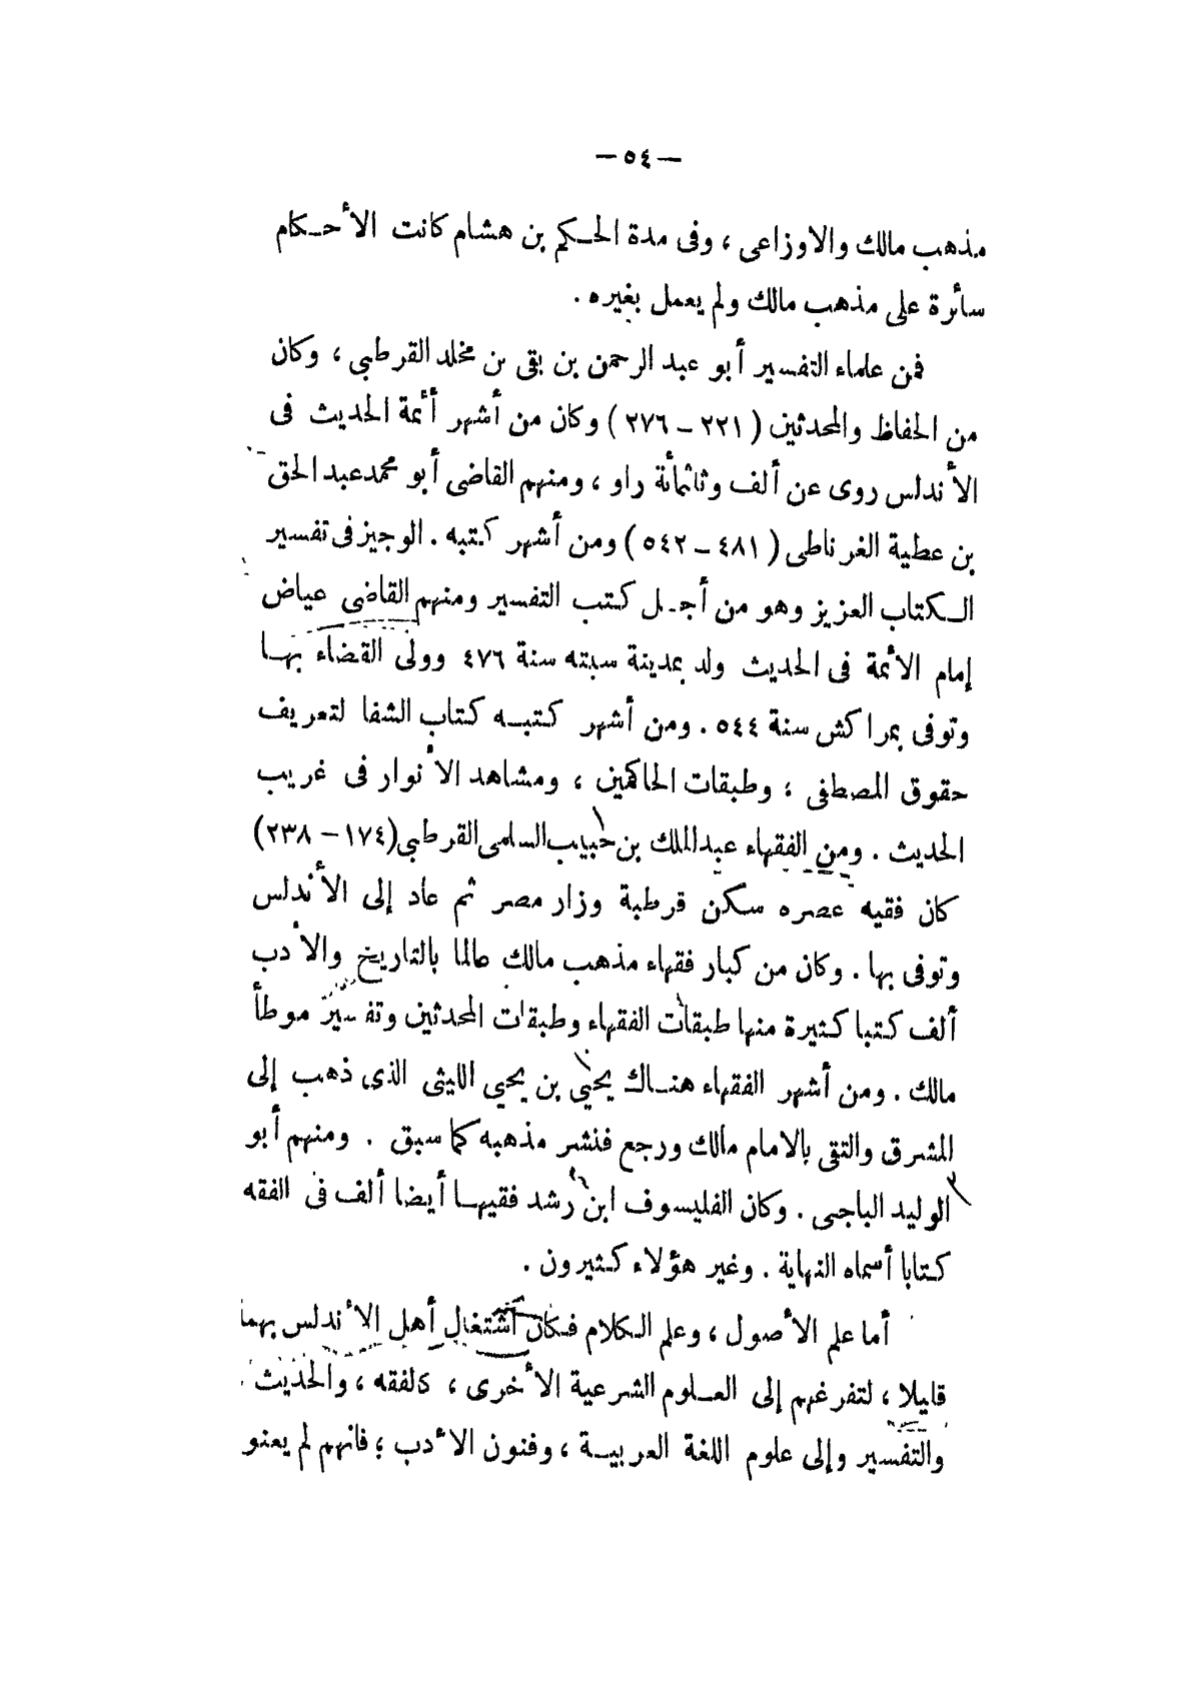 — ٥٤ —
مذهب مالك والاوزاعى ، وفى مدة الحكم بن هشام كانت الأحكام
سائرة على مذهب مالك ولم يعمل بغيره .
فمن علماء التفسير أبو عبد الرحمن بن بقى بن مخلد القرطبى ، وكان
من الحفاظ والمحدثين ( ٢٢١ – ٢٧٦ ) وكان من أشهر أئمة الحديث فى
الأندلس روى عن ألف وثلثمائة راو ، ومنهم القاضى أبو محمد عبد الحق
بن عطية الغرناطى ( ٤٨١ – ٥٤٢ ) ومن أشهر كتبه . الوجيز فى تفسير
الكتاب العزيز وهو من أجل كتب التفسير ومنهم القاضى عياض
إمام الأئمة فى الحديث ولد بمدينة سبته سنة ٤٧٦ وولى القضاء بها
وتوفى بمراكش سنة ٥٤٤ . ومن أشهر كتبه كتاب الشفا لتعريف
حقوق المصطفى ، وطبقات الحاكمين ، ومشاهد الأنوار فى غريب
الحديث . ومن الفقهاء عبد الملك بن حبيب السلمى القرطبى (١٧٤ – ٢٣٨)
كان فقيه عصره سكن قرطبة وزار مصر ثم عاد إلى الأندلس
وتوفى بها . وكان من كبار فقهاء مذهب مالك عالما بالتاريخ والأدب
ألف كتبا كثيرة منها طبقات الفقهاء وطبقات المحدثين وتفسير موطأ
مالك . ومن أشهر الفقهاء هناك يحيى بن يحيى الليثى الذى ذهب إلى
المشرق والتقى بالامام مالك ورجع فنشر مذهبه كما سبق . ومنهم أبو
الوليد الباجى . وكان الفليسوف ابن رشد فقيها أيضا ألف فى الفقه
كتابا أسماه النهاية . وغير هؤلاء كثيرون .
أما علم الأصول ، وعلم الكلام فكان اشتغال أهل الأندلس بهما
قليلا ، لتفرغهم إلى العلوم الشرعية الأخرى ، كالفقه ، والحديث ،
والتفسير وإلى علوم اللغة العربية ، وفنون الأدب ؛ فانهم لم يعنو